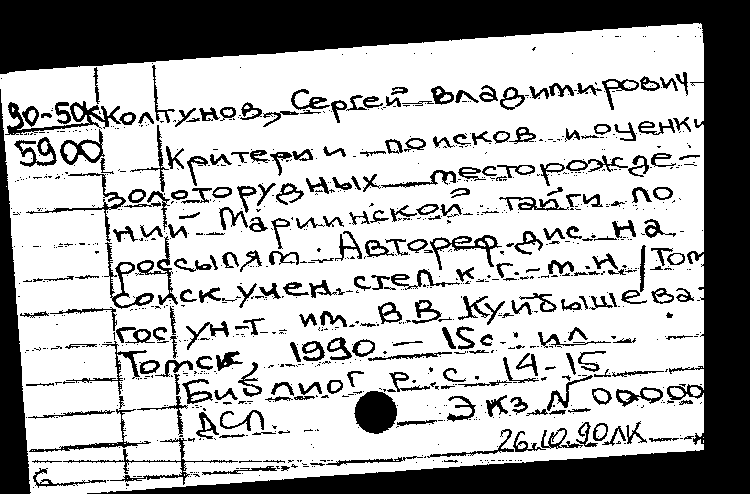 90-50К Колтунов, Сергей Владимирович
5900 Критерии поисков и оценки
золоторудных месторожде-
ний Мариинской тайги по
россыпям. Автореф. дис. на
соиск учен. степ. к. г.-м. н. / Том
гос ун-т им. В В Куйбышева.
Томск, 1990. – 15с. : ил.
Библиогр. : с. 14-15
ДСП. Экз N 00000
26.10.90 ЛК